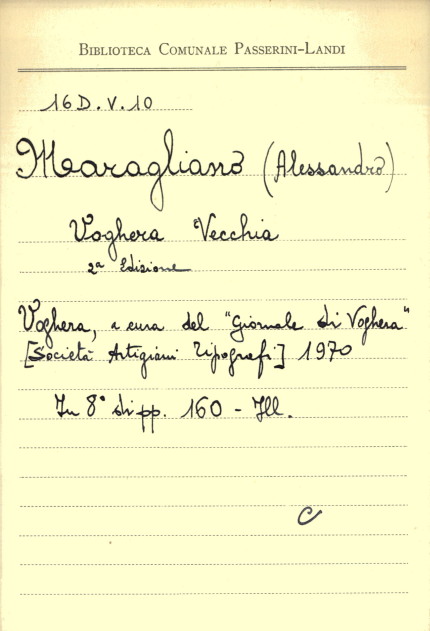 BIBLIOTECA COMUNALE PASSERINI-LANDI
16 D. V. 10
Maragliano (Alessandro)
Voghera Vecchia
2ª Edizione
Voghera, a cura del "Giornale di Voghera"
[Società Artigiani Tipografi] 1970
In 8° di pp. 160 - Ill.
C